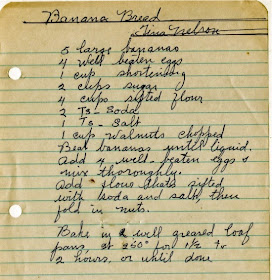 Banana Bread
Tina Nelson
5 large bananas
4 well beaten eggs
1 cup shortening
2 cups sugar
4 cups sifted flour
2 Ts- Soda
1 Ts- Salt
1 cup walnuts chopped
Beat bananas until liquid.
Add 4 well-beaten eggs &
mix thoroughly.
Add flour thats sifted
with soda and salt, then
fold in nuts.
Bake in 2 well greased loaf
pans, at 250° for 1 1/2 to
2 hours, or until done